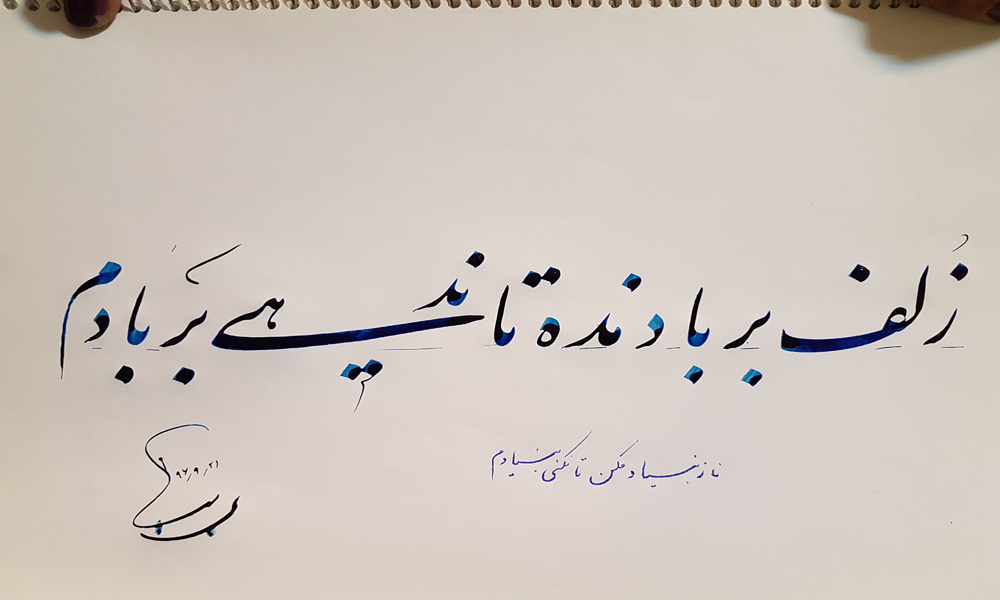 زُلف بر باد نده تا ندهی بَر بادم
ناز بنیاد مکن تا نکنی بنیادم
۹۶٫۹٫۲۱